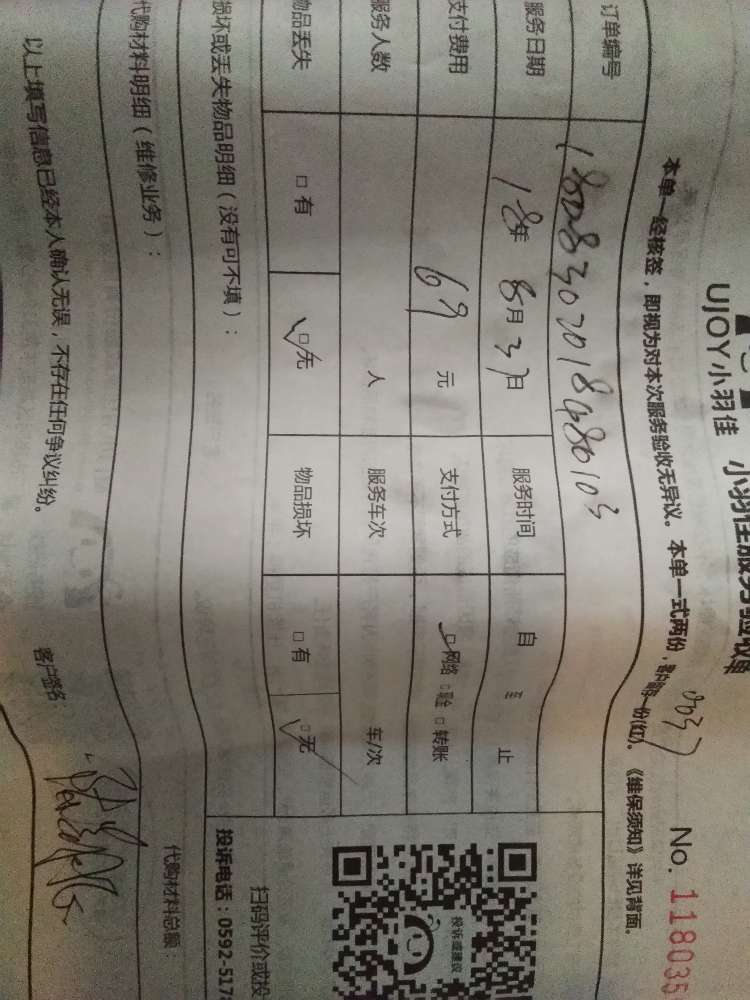 UJOY小羽佳 小羽佳服务验收单
No. 118035
本单一经核签，即视为对本次服务验收无异议。本单一式两份，客户留存一份(红)。《维保须知》详见背面。
订单编号
服务日期 18年 8月 31日 服务时间 自 至 止
支付费用 69 元 支付方式 □网络 □现金 □转账
服务人数 人 服务车次 车/次
物品丢失 □有 □无 物品损坏 □有 □无
损坏或丢失物品明细（没有可不填）：
扫码评价或投
投诉或建议
投诉电话：0592-517
代购材料明细（维修业务）： 代购材料总额：
以上填写信息已经本人确认无误，不存在任何争议纠纷。 客户签名